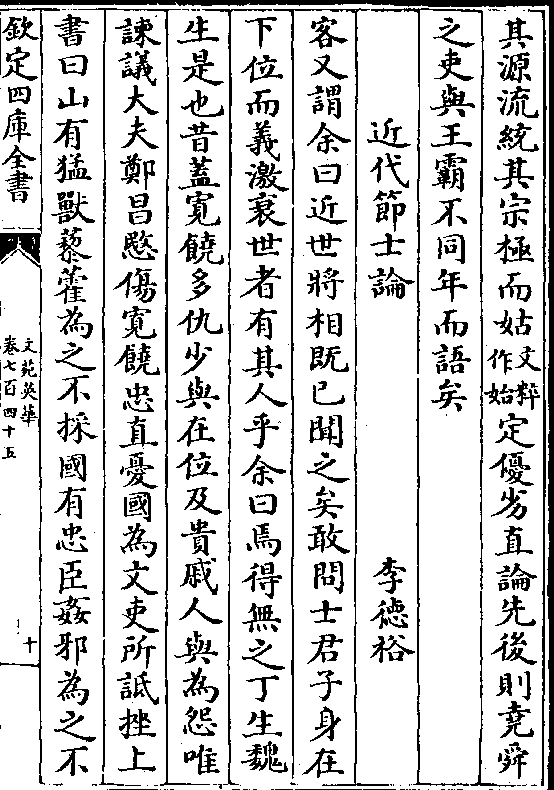 其源流統其宗極而姑文粹作始定優劣直論先後則堯舜
之吏與王霸不同年而語矣
近代節士論 李德裕
客又謂余曰近世將相既已聞之矣敢問士君子身在
下位而義激衰世者有其人乎余曰焉得無之丁生魏
生是也昔蓋寛饒多仇少與在位及貴戚人與為怨唯
諫議大夫鄭昌愍傷寛饒忠直憂國為文吏所詆挫上
書曰山有猛獸藜藿為之不採國有忠臣姦邪為之不
欽定四庫全書
文苑英華
卷七百四十五
十